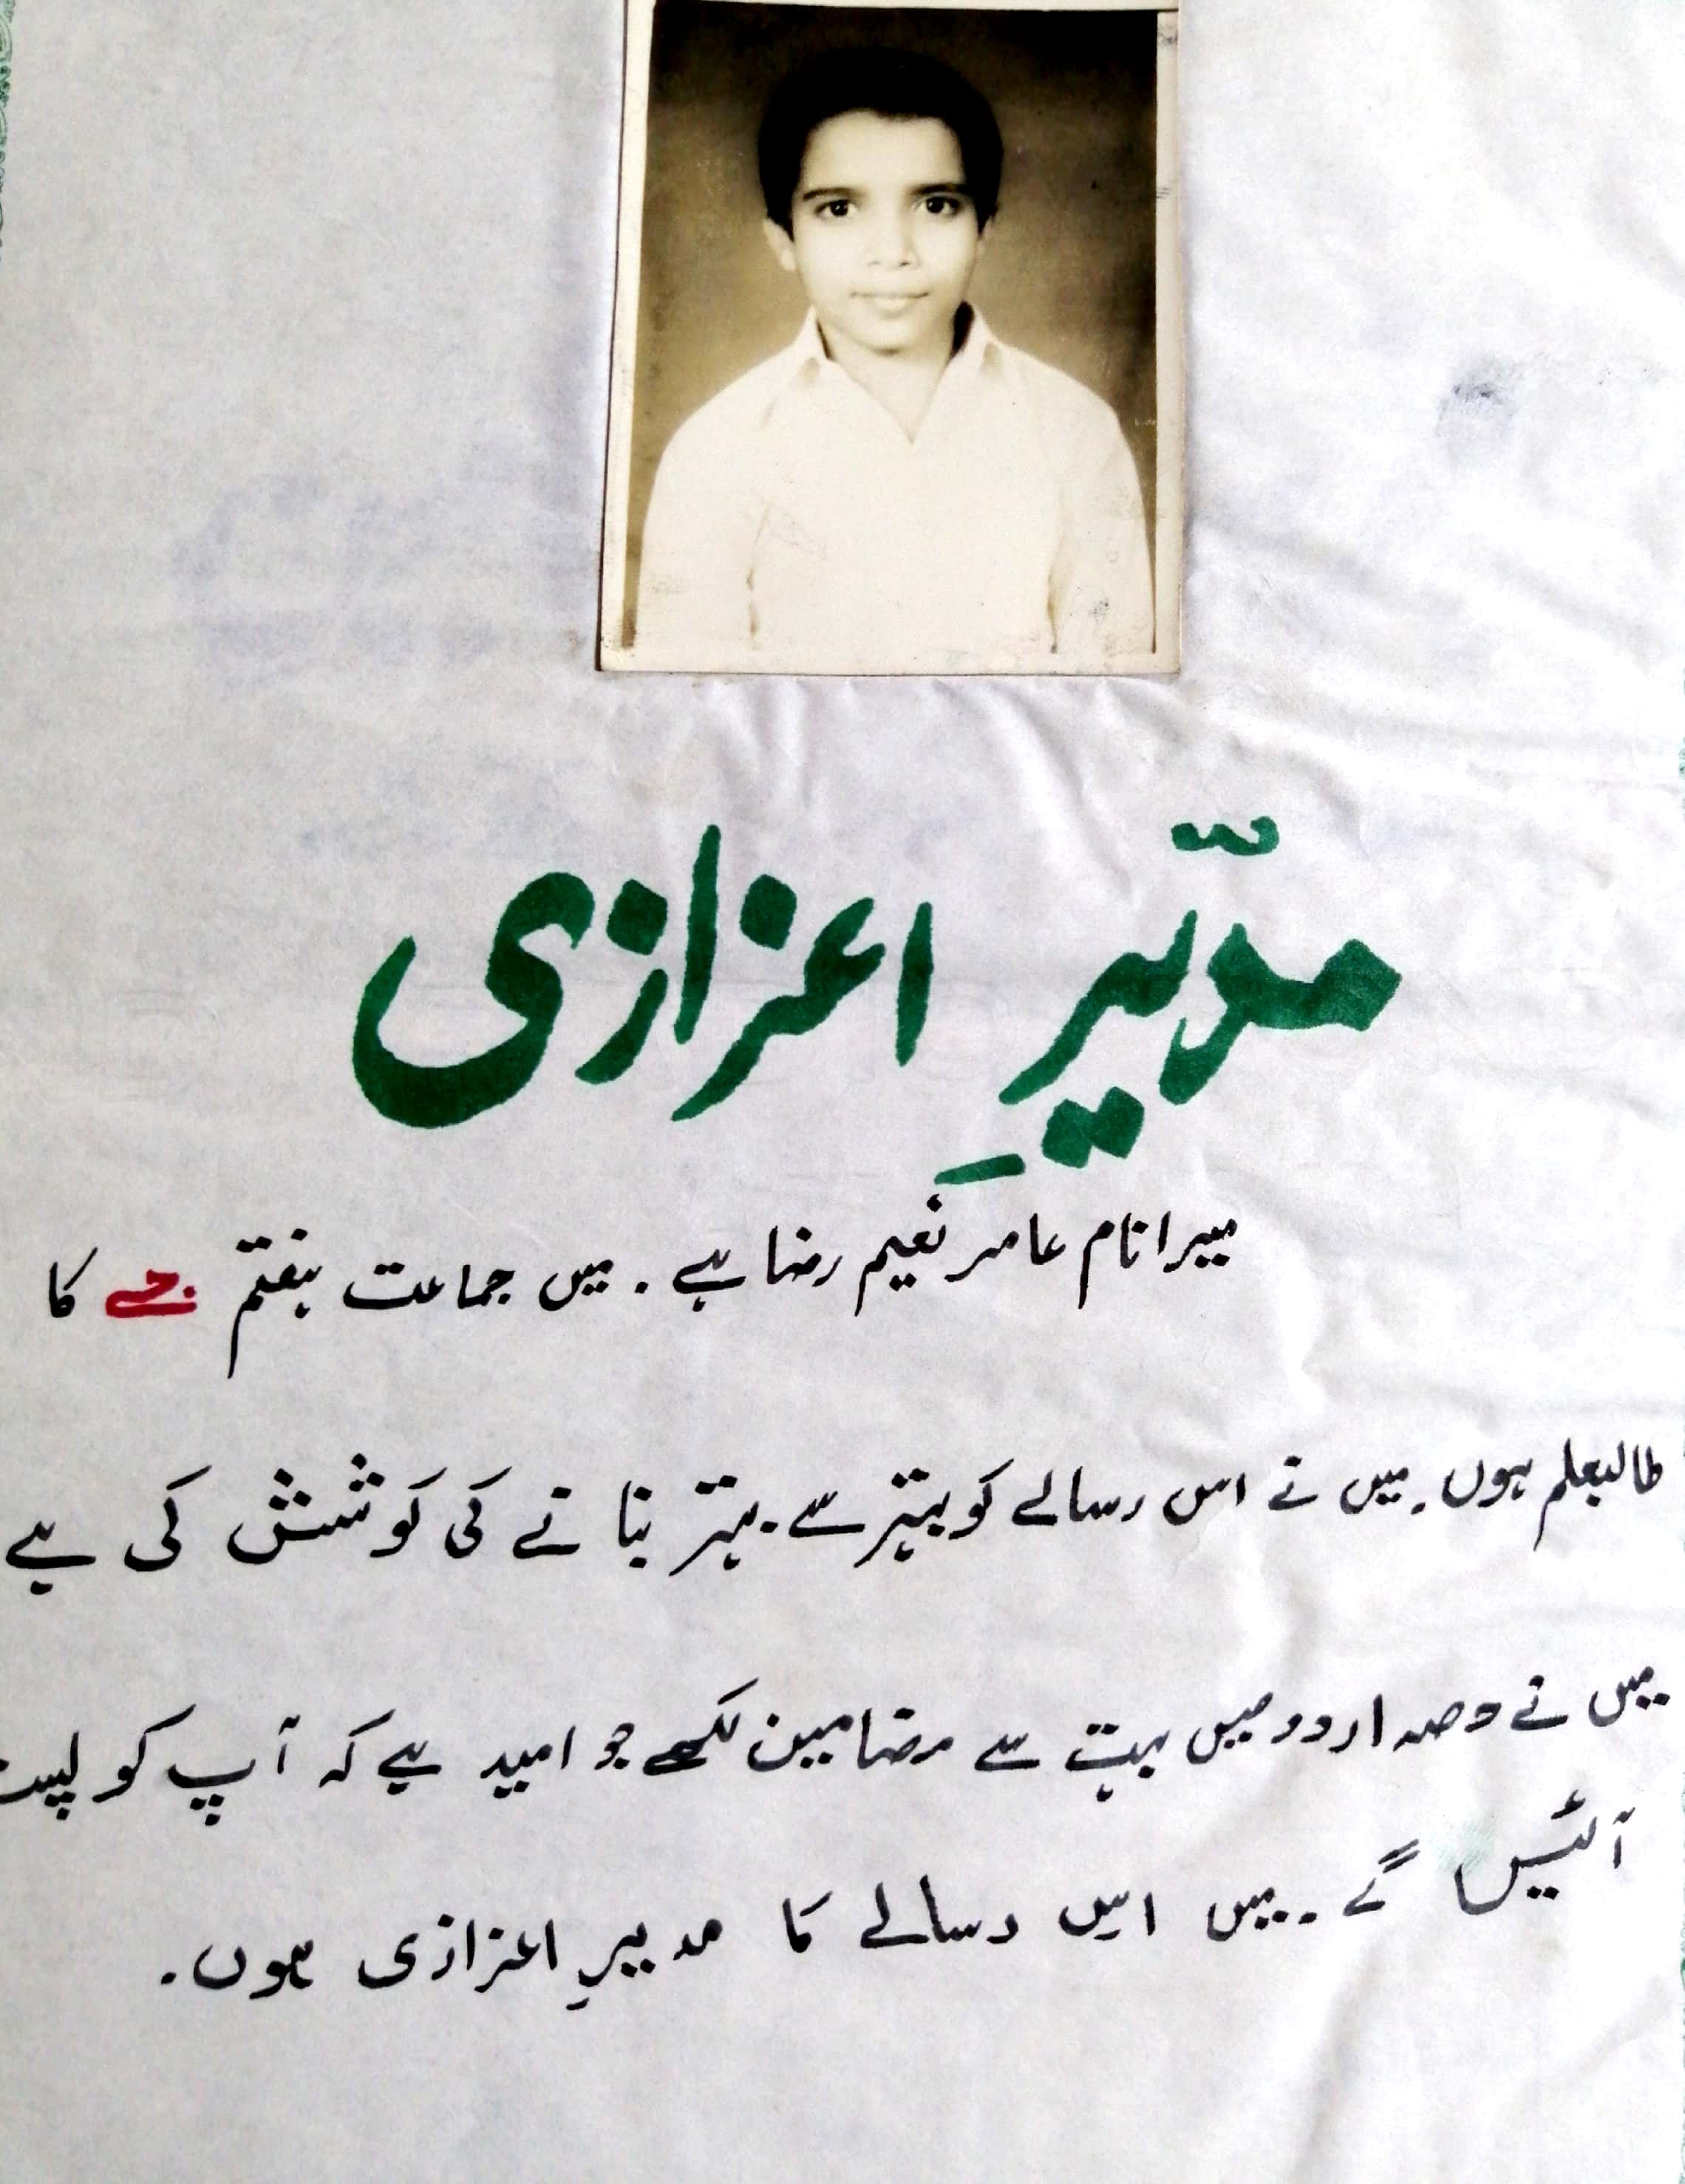 مدّیرِ اعزازی
میرا نام عامر نعیم رضا ہے ۔ میں جماعت ہفتم جے کا
طالبعلم ہوں۔ میں نے اس رسالے کو بہتر سے بہتر بنانے کی کوشش کی ہے
میں نے حصہ اردو میں بہت سے مضامین لکھے جو امید ہے کہ آپ کو
آئیں گے ۔ میں اس رسالے کا مدیرِ اعزازی ہوں ۔